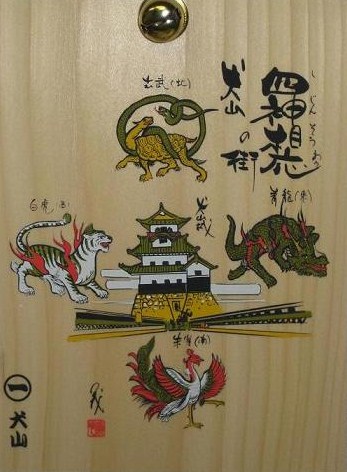 四神相応
し じん そう おう
犬山の街
玄武(北)
青龍(東)
犬山城
白虎(西)
朱雀(南)
一 犬山